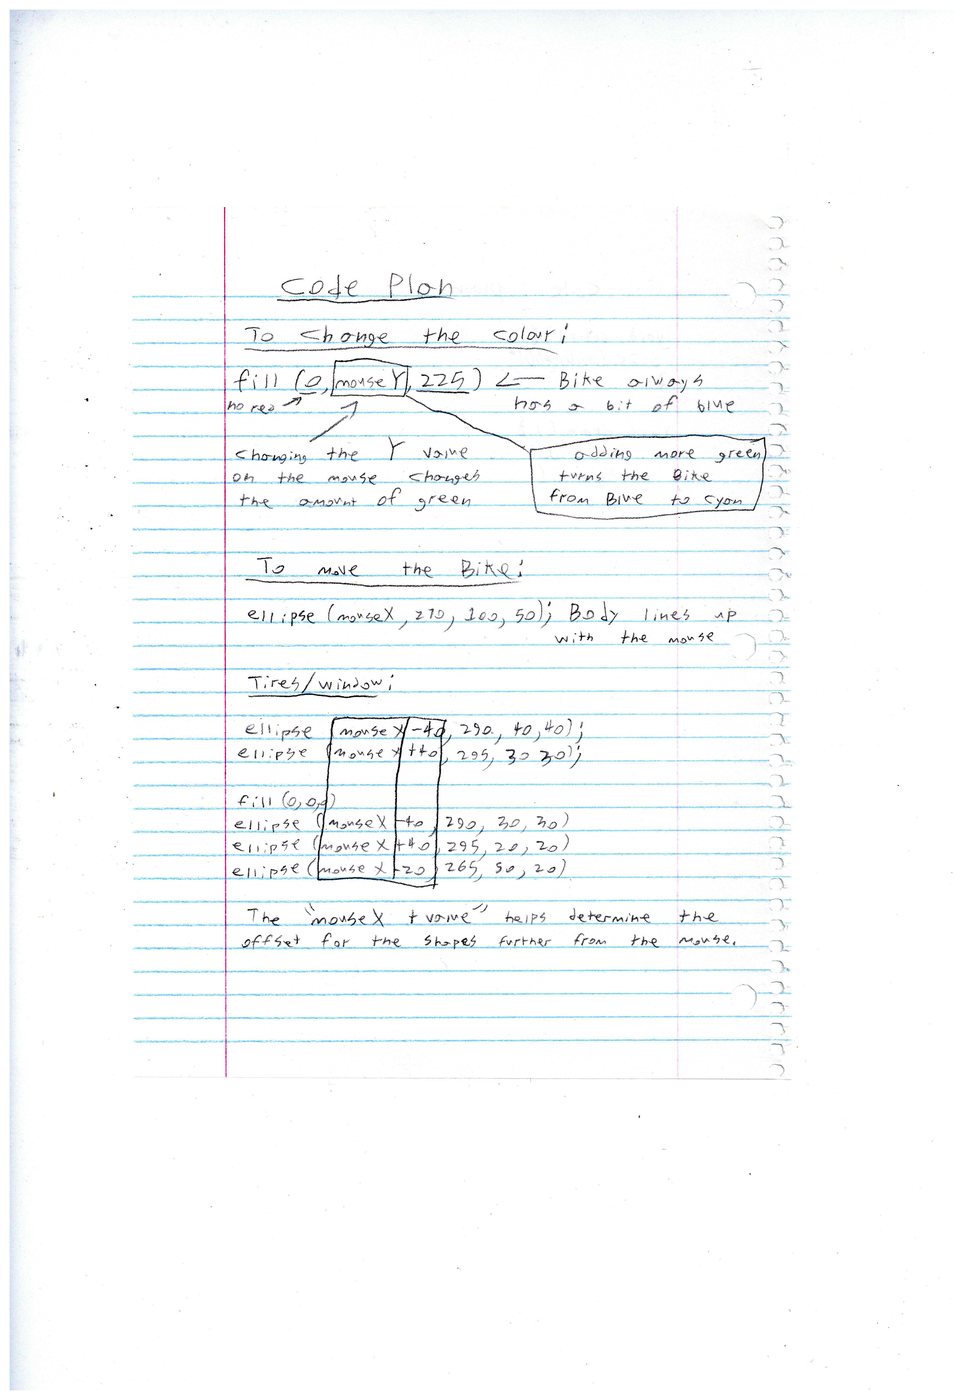 Code Plan
To change the colour:
fill (0, mouseY, 225) <— Bike always
no red
has a bit of blue
changing the Y value
on the mouse changes
the amount of green
adding more green
turns the Bike
from Blue to cyan
To move the Bike:
ellipse (mouseX, 270, 100, 50); Body lines up
with the mouse
Tires/window:
ellipse (mouseX -40, 290, 40, 40);
ellipse (mouseX +40, 295, 30 30);
fill (0,0,0)
ellipse (mouseX -40, 290, 30, 30)
ellipse (mouseX +40, 295, 20, 20)
ellipse (mouseX -20, 265, 50, 20)
The "mouseX + value" helps determine the
offset for the shapes further from the mouse.